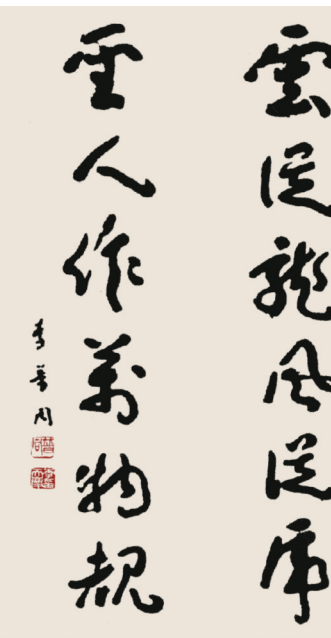 雲從龍風從虎
聖人作萬物覩
李普同